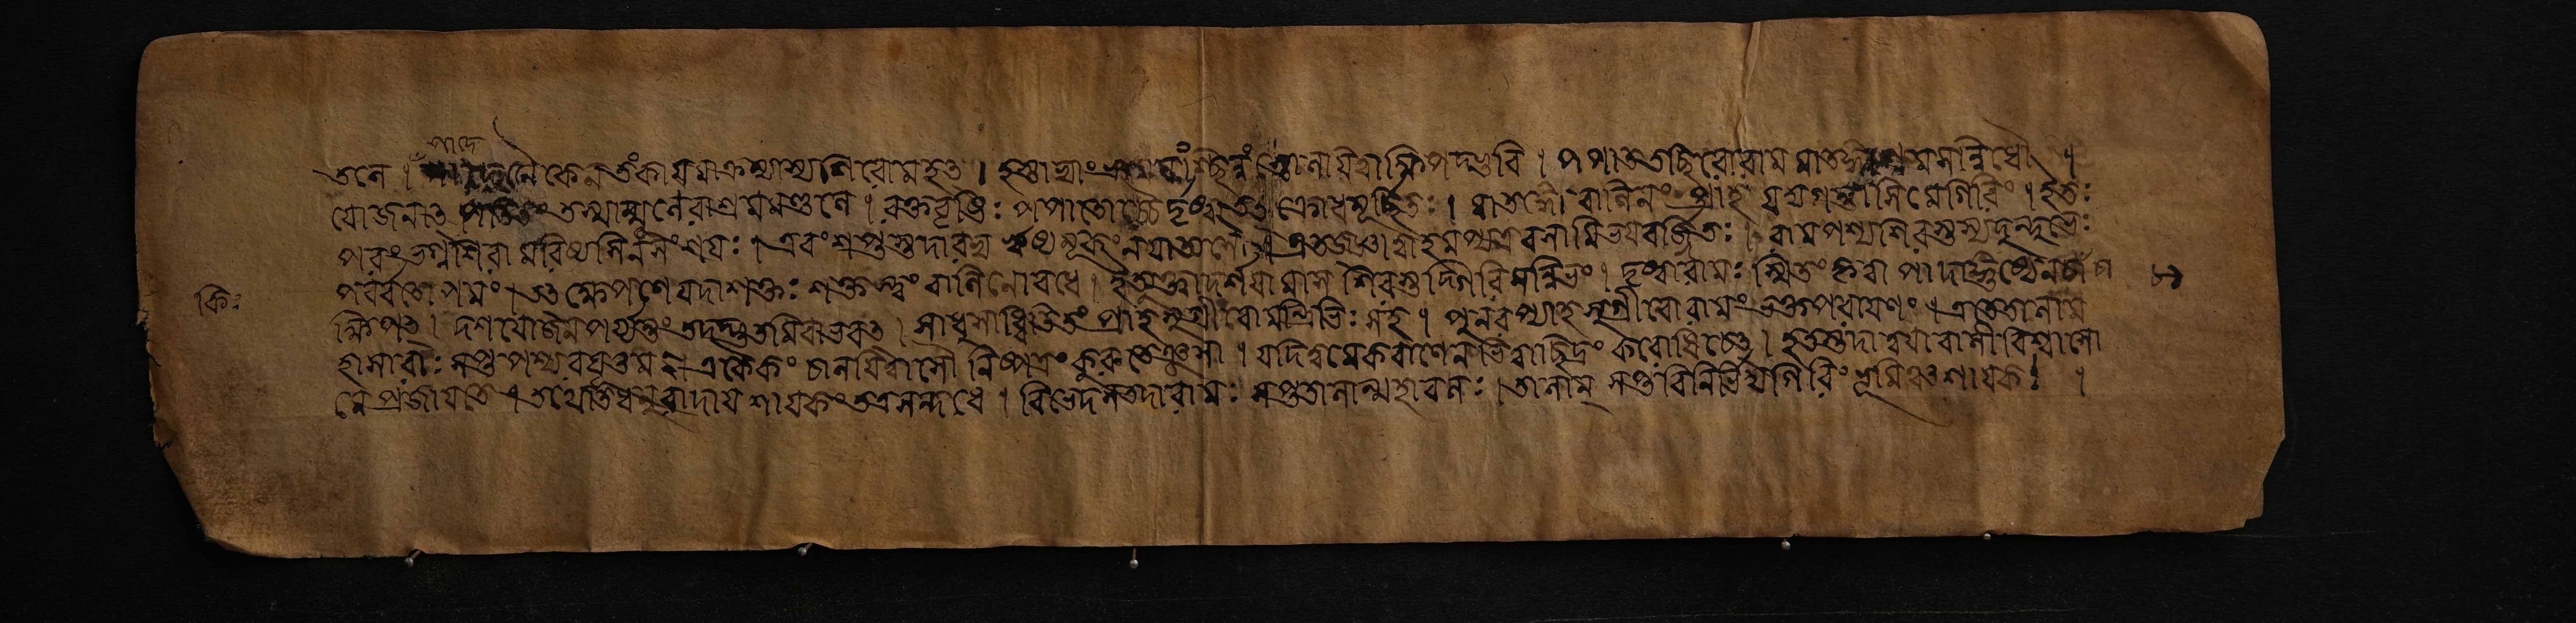 পাদে
তলে । পাদেনৈকেন তংকায়মাক্রম্যাস্যশিরোমহত্ । হস্তাভ্যাং ভ্রাময়ংশ্ছিন্নং তোলয়িত্বাক্ষিপদ্ভুবি । পপাততচ্ছিরোরাম মাতঙ্গাশ্রমসন্নিধৌ ।
যোজনাত্ পতিতং তস্মান্মুনেরাশ্রমমণ্ডলে । রক্তবৃষ্টিঃ পপাতোচ্চৈর্দৃষ্ট্বা ক্রোধমূর্চ্ছিতঃ । মাতঙ্গো বালিনং প্রাহ যদ্যাগন্তাসিমেগিরিং । ইতঃ
পরং ভগ্নশিরা মরিষ্যসিনসংশয়ঃ । এবং শপ্তস্তদারভ্য ঋষ্যমূকং নযাত্যসৌ । এতজ্জ্ঞাত্বাহমপ্যত্রবসামিভয়বর্জিতঃ । রামপশ্যশিরস্তস্যদুন্দুভেঃ
পর্ব্বতোপমং । তত্ক্ষেপণেযদাশক্তঃ শক্তস্ত্বং বালিনোবধে । ইত্যুক্ত্বাদর্শয়ামাস শিরস্তদ্গিরিসন্নিভং । দৃষ্ট্বারামঃ স্মিতং কৃত্বা পাদাঙ্গুষ্ঠেনচা
কি০
৮
ক্ষিপত্ । দশযোজনপর্য্যন্তং তদদ্ভুতমিবাভবত্ । সাধুসাধ্বিতিতং প্রাহসুগ্রীবোমন্ত্রিভিঃ সহ । পুনরপ্যাহসুগ্রীবোরামং ভক্তপরায়ণং । এতেতালাম
হাসারাঃ সপ্তপশ্যরঘূত্তম । একৈকং চালয়িত্বাসৌ নিষ্পত্রং কুরুতেঞ্জসা । যদিত্বমেকবাণেন ভিত্বাছিদ্রং করোষিচেত্ । হতস্তদাত্বয়াবালীবিশ্বাসো
মে প্রজায়তে । তথেতিধনুরাদায় শায়কং তত্রসন্দধে । বিভেদসতদারামঃ সপ্ততালান্মহাবলঃ । তালান্ সপ্তবিনির্ভিদ্যগিরিং ভূমিঞ্চশায়কঃ ।